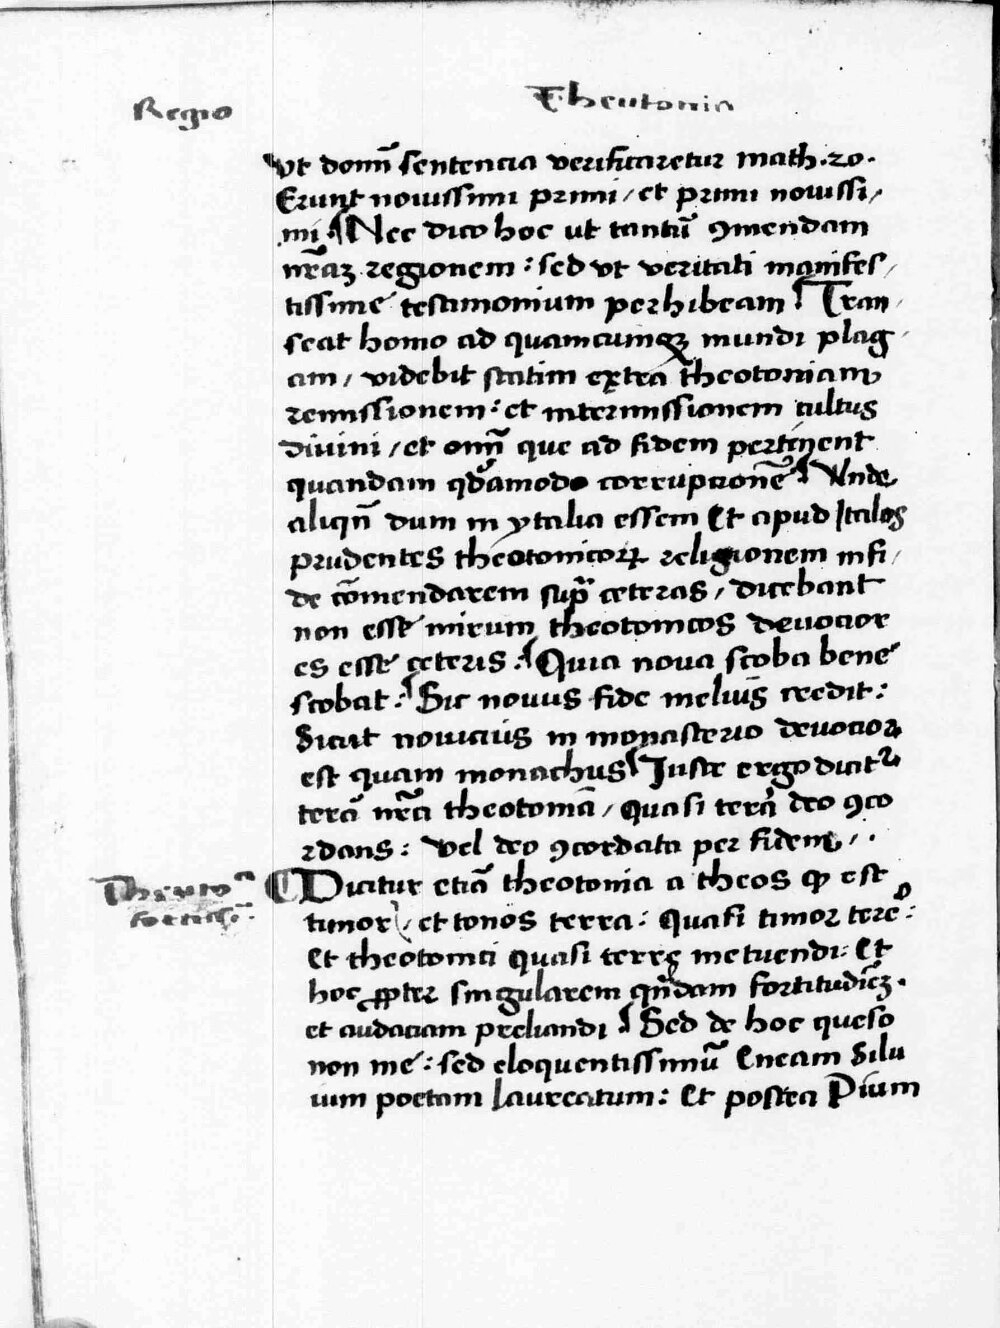 Regio
Theutonia
Vt domī sentencia verificaretur math. 20.
Erunt nouissimi primi / et primi nouissi /
mi ¶ Nec dico hoc ut tantū ꝯmendam
nr̄aꝫ regionem : sed vt veritati manifes /
tissime testimonium perhibeam ¶ Tran /
seat homo ad quamcumqꝫ mundi plag /
am / videbit statim extra theotoniam
remissionem : et intermissionem cultus
diuini / et omī que ad fidem pertinent
quandam qd̄amodo corrupcionē ¶ Vnde
aliqn̄ dum in ytalia essem Et apud Italos
prudentes theotonicoꝝ religionem in fi /
de cōmendarem supr̄ ceteras / dicebant
non esse mirum theotonicos deuocior
es esse ceteris : ¶ Quia noua scoba bene
scobat : ¶ Sic nouus fide melius credit :
Sicut nouicius in monasterio deuocior
est quam monachus ¶ Iuste ergo dicitᷣ
terā nr̄a theotoniā / quasi terā deo ꝯco
rdans : vel deo ꝯcordata per fidem / .
Theutoᵃ
fortissī :
¶ Dicitur etiā theotonia a theos ꝙ est
timor / et tonos terra : Quasi timor tere᷒ :
Et theotonici quasi terre metuendi : Et
hoc ꝓpter singularem qn̄dam fortitudīeꝫ .
et audaciam preliandi ¶ Sed de hoc queso
non me : sed eloquentissimū Eneam Silu
ium poetam laureatum : Et postea Pium